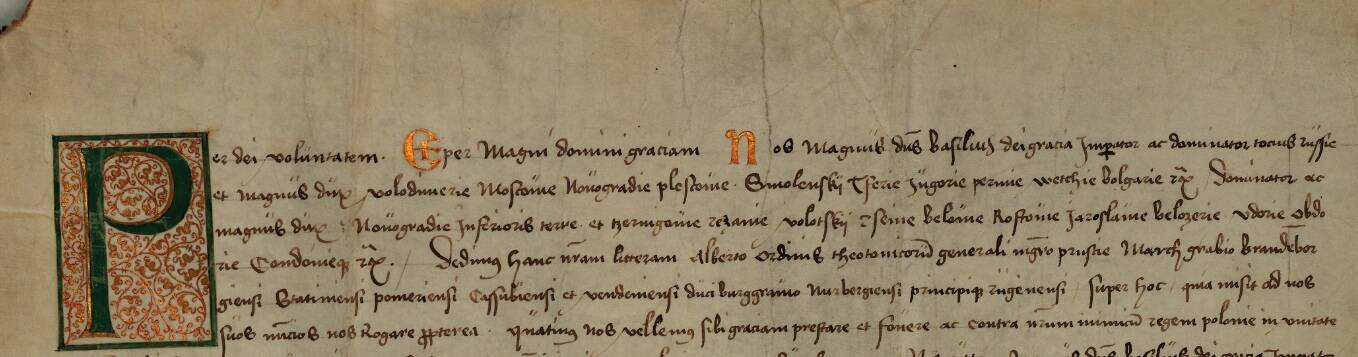 Per dei voluntatem. Et per Magni domini graciam Nos Magnus dns basilius dei gracia Imperator ac dominator tocius russie
et Magnus dux volodimerie Moscovie Novogradie plescovie. Smolenskij Tferie Jugorie permie wetchie bolgarie Dominator ac
magnus dux Novogradie Inferioris terre et tzernigovie rezanie volotskij rseuie beloie Rostovie Jaroslavie belozerie vdorie obdo
rie Condomieq Dedimus hanc nram litteram Alberto ordinis theotonicorum generali mgro prussie March grabio brandebor
giensi Statinensi pomeriensi Cassubiensi et vendeniensi duci burggravio Nurbergiensi principiq rugenensi super hoc quia misit ad nos
suos nuncios nos Rogare propterea. quatinus nos vellemus sibi graciam prestare et fovere ac contra nrum inimicum regem polonie in unitate